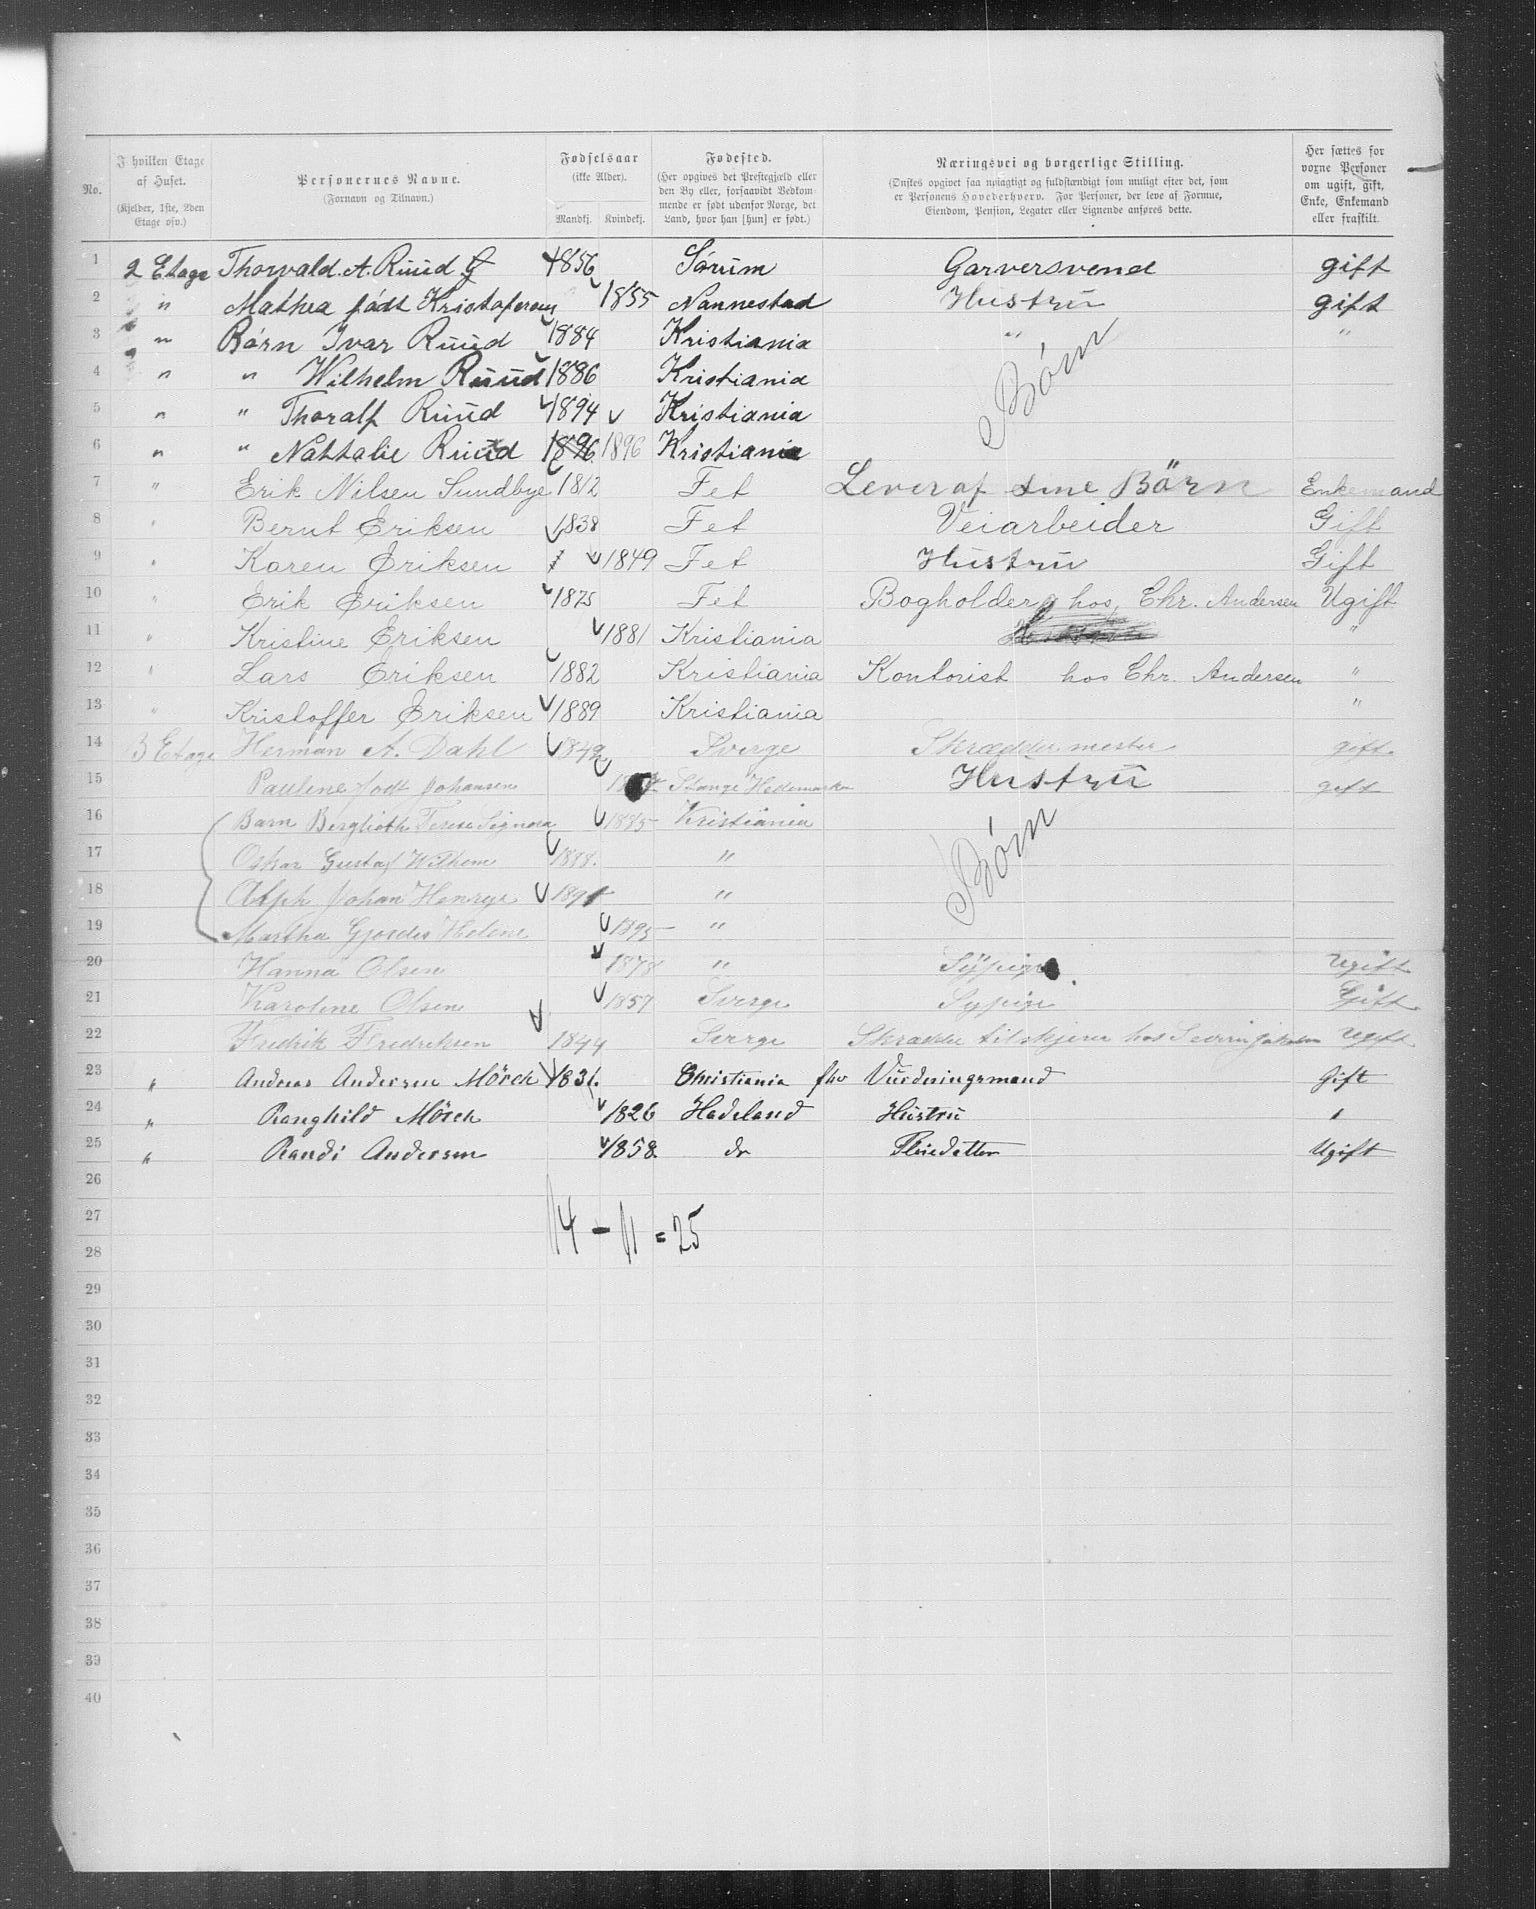 No.
I hvilken Etage af Huset.
(Kjelder, 1ste, 2den Etage osv.)
Personernes Navne.
(Fornavn og Tilnavn.)
Fødselsaar
(ikke Alder).
Mandkj. Kvindekj.
Fødested.
(Her opgives det Prestegjæld eller den By eller, forsaavidt Vedkommende er født udenfor Norge, det Land, hvor han [hun] er født.)
Næringsvei og borgerlige Stilling.
(Ønskes opgivet saa nøiagtigt og fuldstændigt som muligt efter det, som er Personens Hovederhverv. For Personer, der leve af Formue, Eiendom, Pension, Legater eller Lignende anføres dette.
Her sættes for voxne Personer om ugift, gift, Enke, Enkemand eller fraskilt.
1 2 Etage Thorvald. A. Ruud 1856 Sørum Garversvend gift
2 " Mathea født Kristofersen 1855 Nannestad Hustru gift
3 " Børn Ivar Ruud 1884 Kristiania " "
4 " " Wilhelm Ruud 1886 Kristiania
Børn
5 " " Thoralf Ruud 1894 Kristiania
6 " " Nathalie Ruud 1896 1896 Kristiania
7 " Erik Nilsen Sundbye 1812 Fet Lever af sine Børn Enkemand
8 " Bernt Eriksen 1838 Fet Veiarbeider Gift
9 " Karen Eriksen 1849 Fet Hustru Gift
10 " Erik Eriksen 1875 Fet Bogholder hos, Chr. Andersen Ugift
11 " Kristine Eriksen 1881 Kristiania "
12 " Lars Eriksen 1882 Kristiania Kontorist hos Chr. Andersen "
13 " Kristoffer Eriksen 1889 Kristiania "
14 3 Etage Herman A. Dahl 1849 Sverge Skrædder mester gift
15 Pauline født Johansen Stange Hedemarken Hustru gift
16 Barn Berglioth Terese Signora 1885 Kristiania
17 Oskar Gustaf Wilhem 1888. "
Børn
18 Johan Henrye 1891 "
19 Martha Helene 1895 "
20 Hanna Olsen 1878 " Sypige Ugift
21 Karoline Olsen 1857 Sverge Sypige Gift
22 Fredrik Fredreksen 1844 Sverge Skrædder tilskjerer hos Ugift
23 " Andreas Andersen Mörch 1831. Christiania fhv Vurderingsmand Gift
24 " Ranghild Mörch 1826 Hadeland Hustru "
25 " Randi Andersen 1858 do Pleiedatter Ugift
26
27
14 - 11 = 25
28
29
30
31
32
33
34
35
36
37
38
39
40